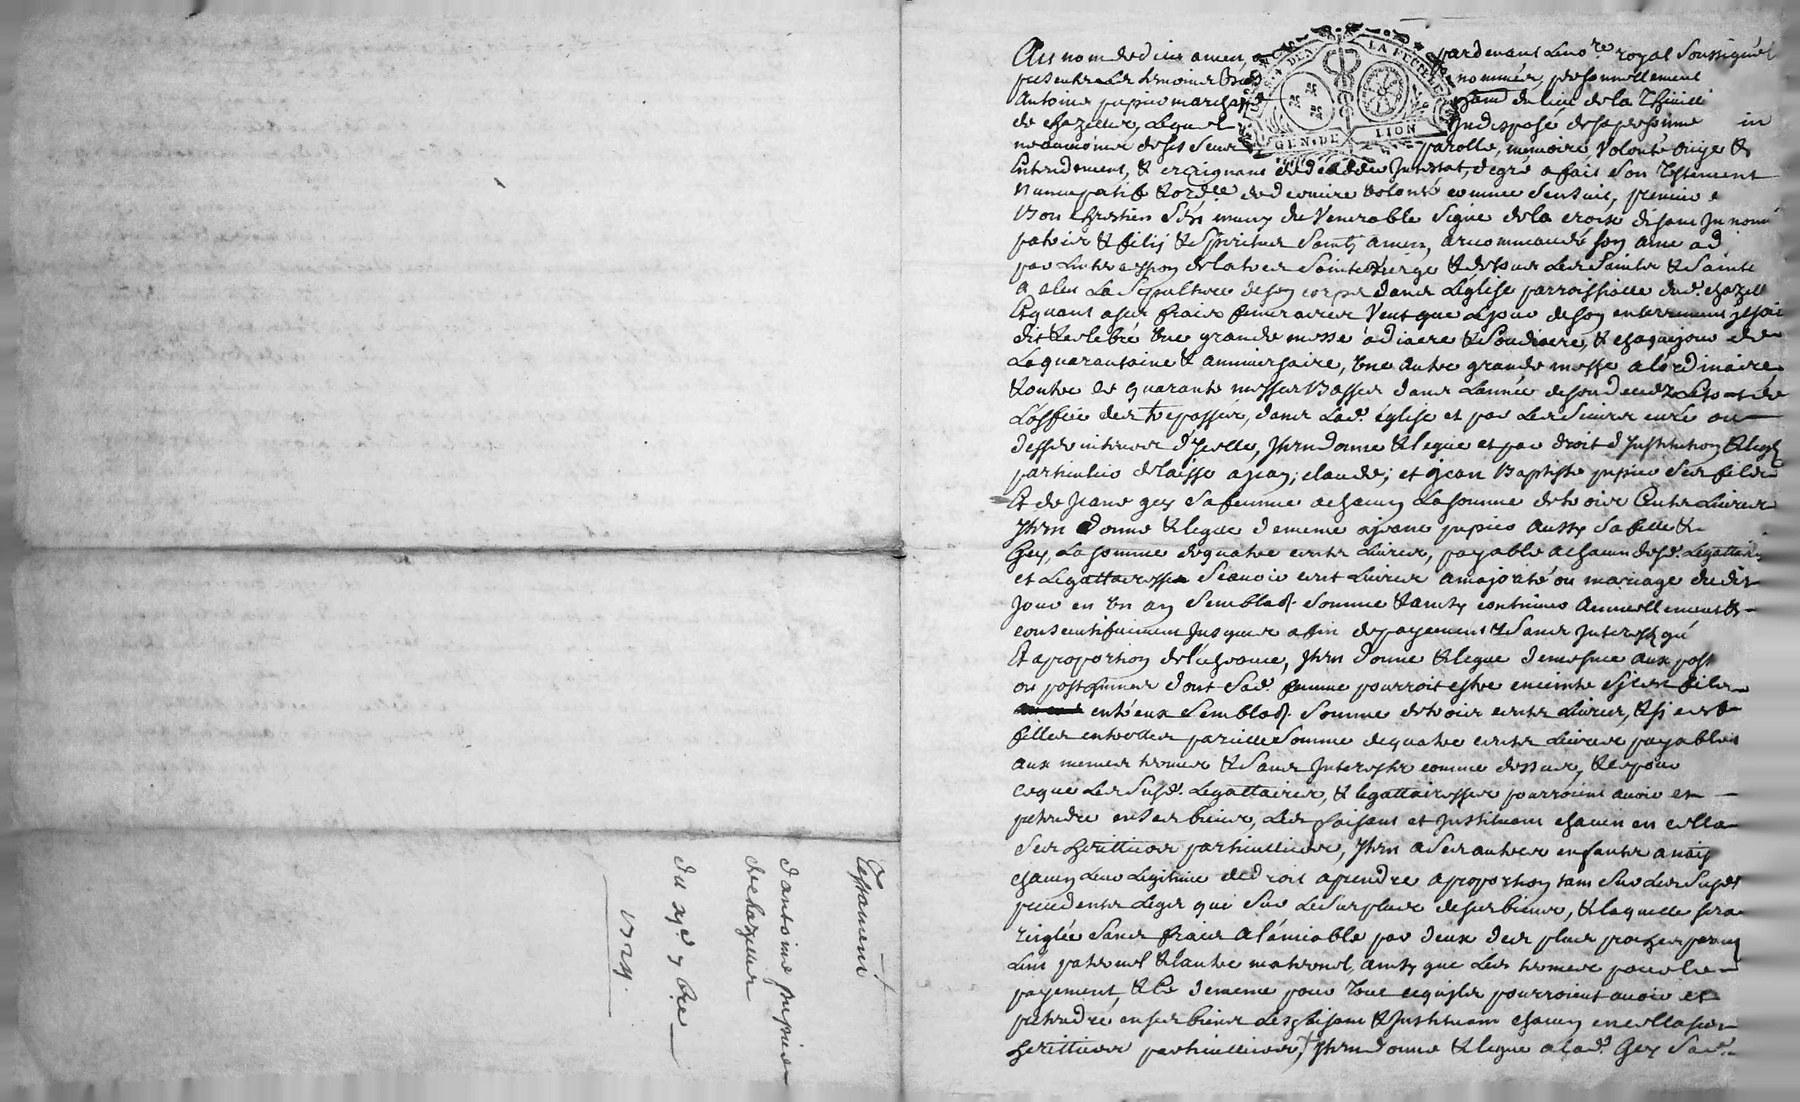 Testament
d'antoine pupier
de chazelles
du xj.e 7bre
1724.
Au nom de dieu amen, pardevant Le no.re royal Soussigné &
presents Les temoins Bas nommés, personnellement
Antoine pupier marchand du lieu de la Thuilli
GEN. DE LION
de chazelles, Lequel Indisposé de sa personne
neanmoins de ses Sens parolle, memoire, Volonté &
Entendement, & craignant de deceder Intestat, de gré a fait Son Testament
Nuncupatif & ord.ce de derniere Volonté comme s'ensuit, premier
Bon Chrestien S'est muny du Venerable Signe de la croix disant In nomi
patris & filij & Spiritus Sancti amen, a recommandé son ame a d
par L'intercession de la tres Sainte Vierge & de tous Les Saints & Sainte
a eleu La Sepulture de son corps dans L'église parroissialle dud. chazell
Et quant a ses fraix funeraires Veut que Le jour de son enterrement
dit & celebré Une grande messe a diacre & Soudiacre, & chaque jour de
La quarantaine & anniversaire, Une autre grande messe a l'ordinaire
& outre ce quarante messes Basses dans L'année de son deceds
L'office des trepassés, dans Lad. église et par Les Sieurs curé ou
desservants d'jcelle, Item donne & legue et par droit d'Institution & legs
particulier delaisse a jean; claude; et jean Baptiste pupier ses fils
Et de jeane gey Sa femme a chacun La somme de trois Cents Livres
Item donne & legue de meme a jeane pupier aussy Sa fille &
Gey, La somme de quatre cents Livres, payable a chacun desd. Legattair
et Legattairesse Scavoir cent Livres a majorité ou mariage dudit
Jour en Un an Semblable Somme & ainsy continuer annuellement &
consecutivement jusques a fin de payement & Sans Interest qu
Et a proportion de l'écheance, Item donne & legue de mesme aux post
ou posthumes dont Sad. femme pourroit estre enceinte Si c'est fils
entr'eux Semblable Somme de trois cents Livres, & si c'est
filles entr'elles pareille Somme de quatre cents Livres payables
aux memes termes & Sans Interests comme dessus, & ce pour
ce que Les susd. Legattaires, & legattairesses pourroient avoir et
pretendre en ses biens, Les faisant et Instituant chacun en cella
ses heritiers particulliers, Item a ses autres enfants a nais
chacun Leur Legitime de droit a prendre a proportion tant Sur Les Susd.
precedents Legs que Sur Le Surplus de ses biens, & laquelle sera
réglée Sans fraix a l'amiable par deux des plus proches parens
L'un paternel & l'autre maternel, ainsy que Les termes pour le
payement, & ce de meme pour tout ce qu'ils pourroient avoir et
pretendre en ses biens Les faisant & Instituant chacun en cella ses
heritiers particulliers, Item donne & legue a lad. Gey Sad.